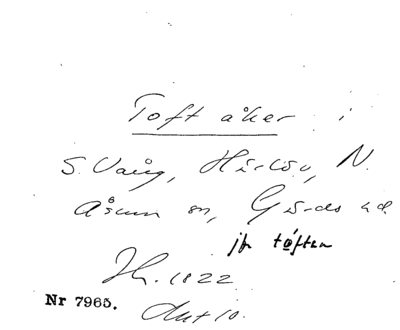 Toft åker i
S. Vång, Härlöv, N.
Åsum sn, Gärds hd.
jfr töften
Hh. 1822
Nr 7965. Akt 10.